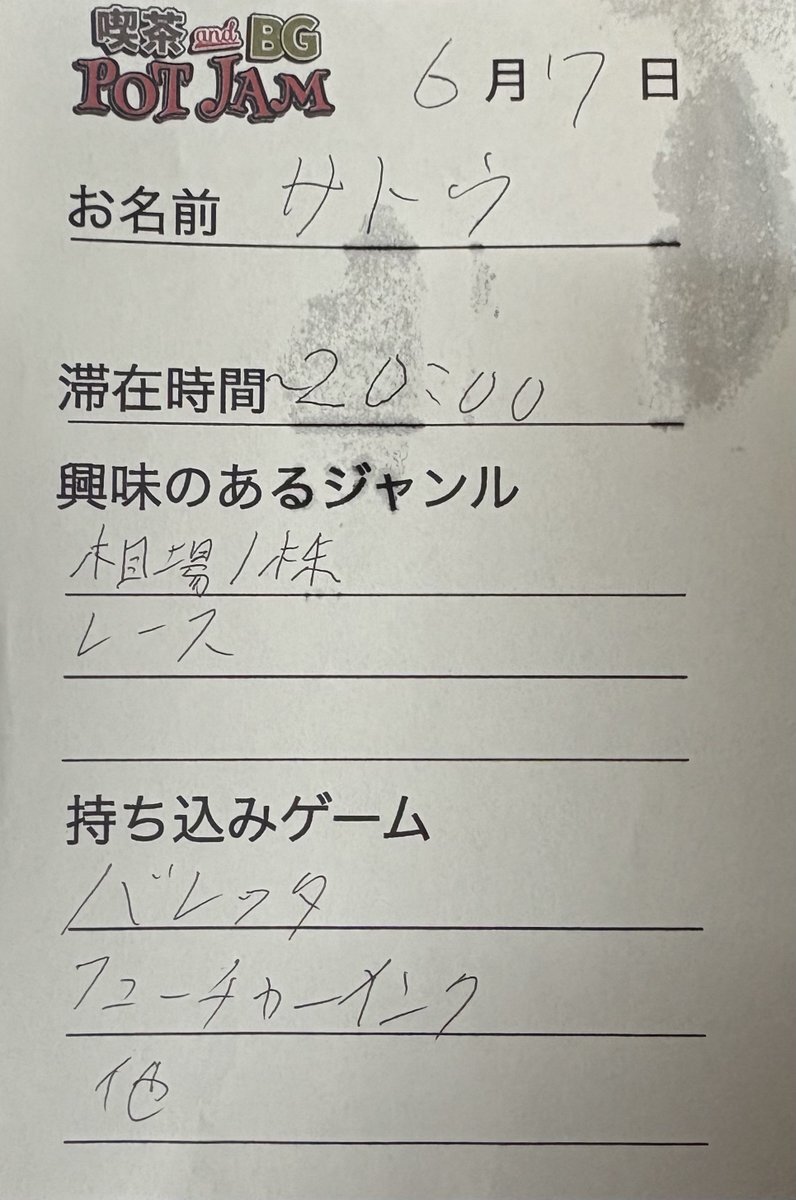 喫茶 and BG
POT JAM
6月7日
お名前 サトウ
滞在時間 ~20:00
興味のあるジャンル
相場/株
レース
持ち込みゲーム
バレッタ
フューチャーインク
他